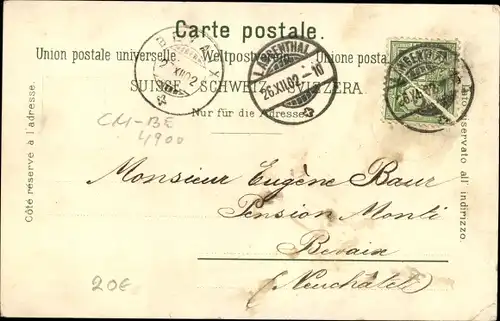 Carte postale.
Union postale universelle. Weltpostverein. Unione postale
SUISSE. SCHWEIZ. SVIZZERA.
Nur für die Adresse.
LANGENTHAL
26.XII.02.–10
BEVAIX
XII.02
LANGENTHAL
CH-BE
4900
Côté réservé à l'adresse.
Lato riservato all' indirizzo.
Monsieur Eugène Baur
Pension Monti
Bevaix
(Neuchâtel)
20€